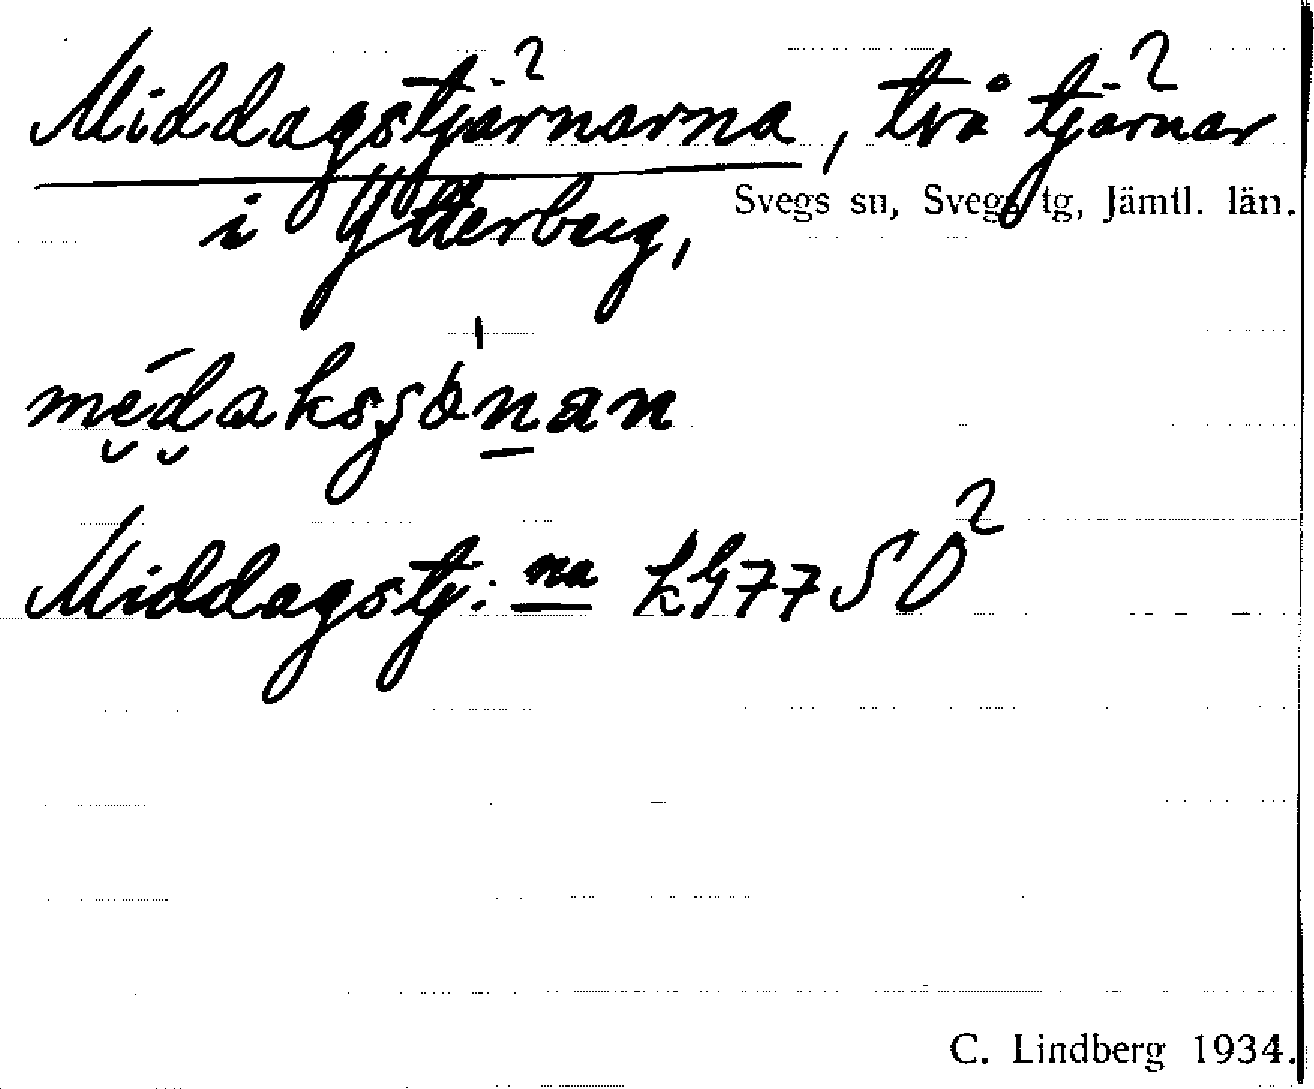 Middagstjärnarna, två tjärnar
i Ytterberg, Svegs sn, Svegs tg, Jämtl. län.
Middagstj:na LG77 SO²
C. Lindberg 1934.